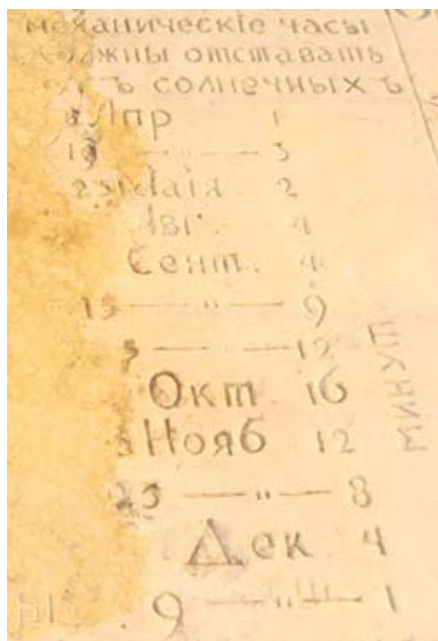 механическіе часы
должны отставать
отъ солнечныхъ
Апр 1
— " — 3
23 Маія 2
Авг. 1
Сент. 4
15 — " — 9
— " — 12
Окт 16
Нояб 12
23 — " — 8
Дек 4
9 — " — 1
минут